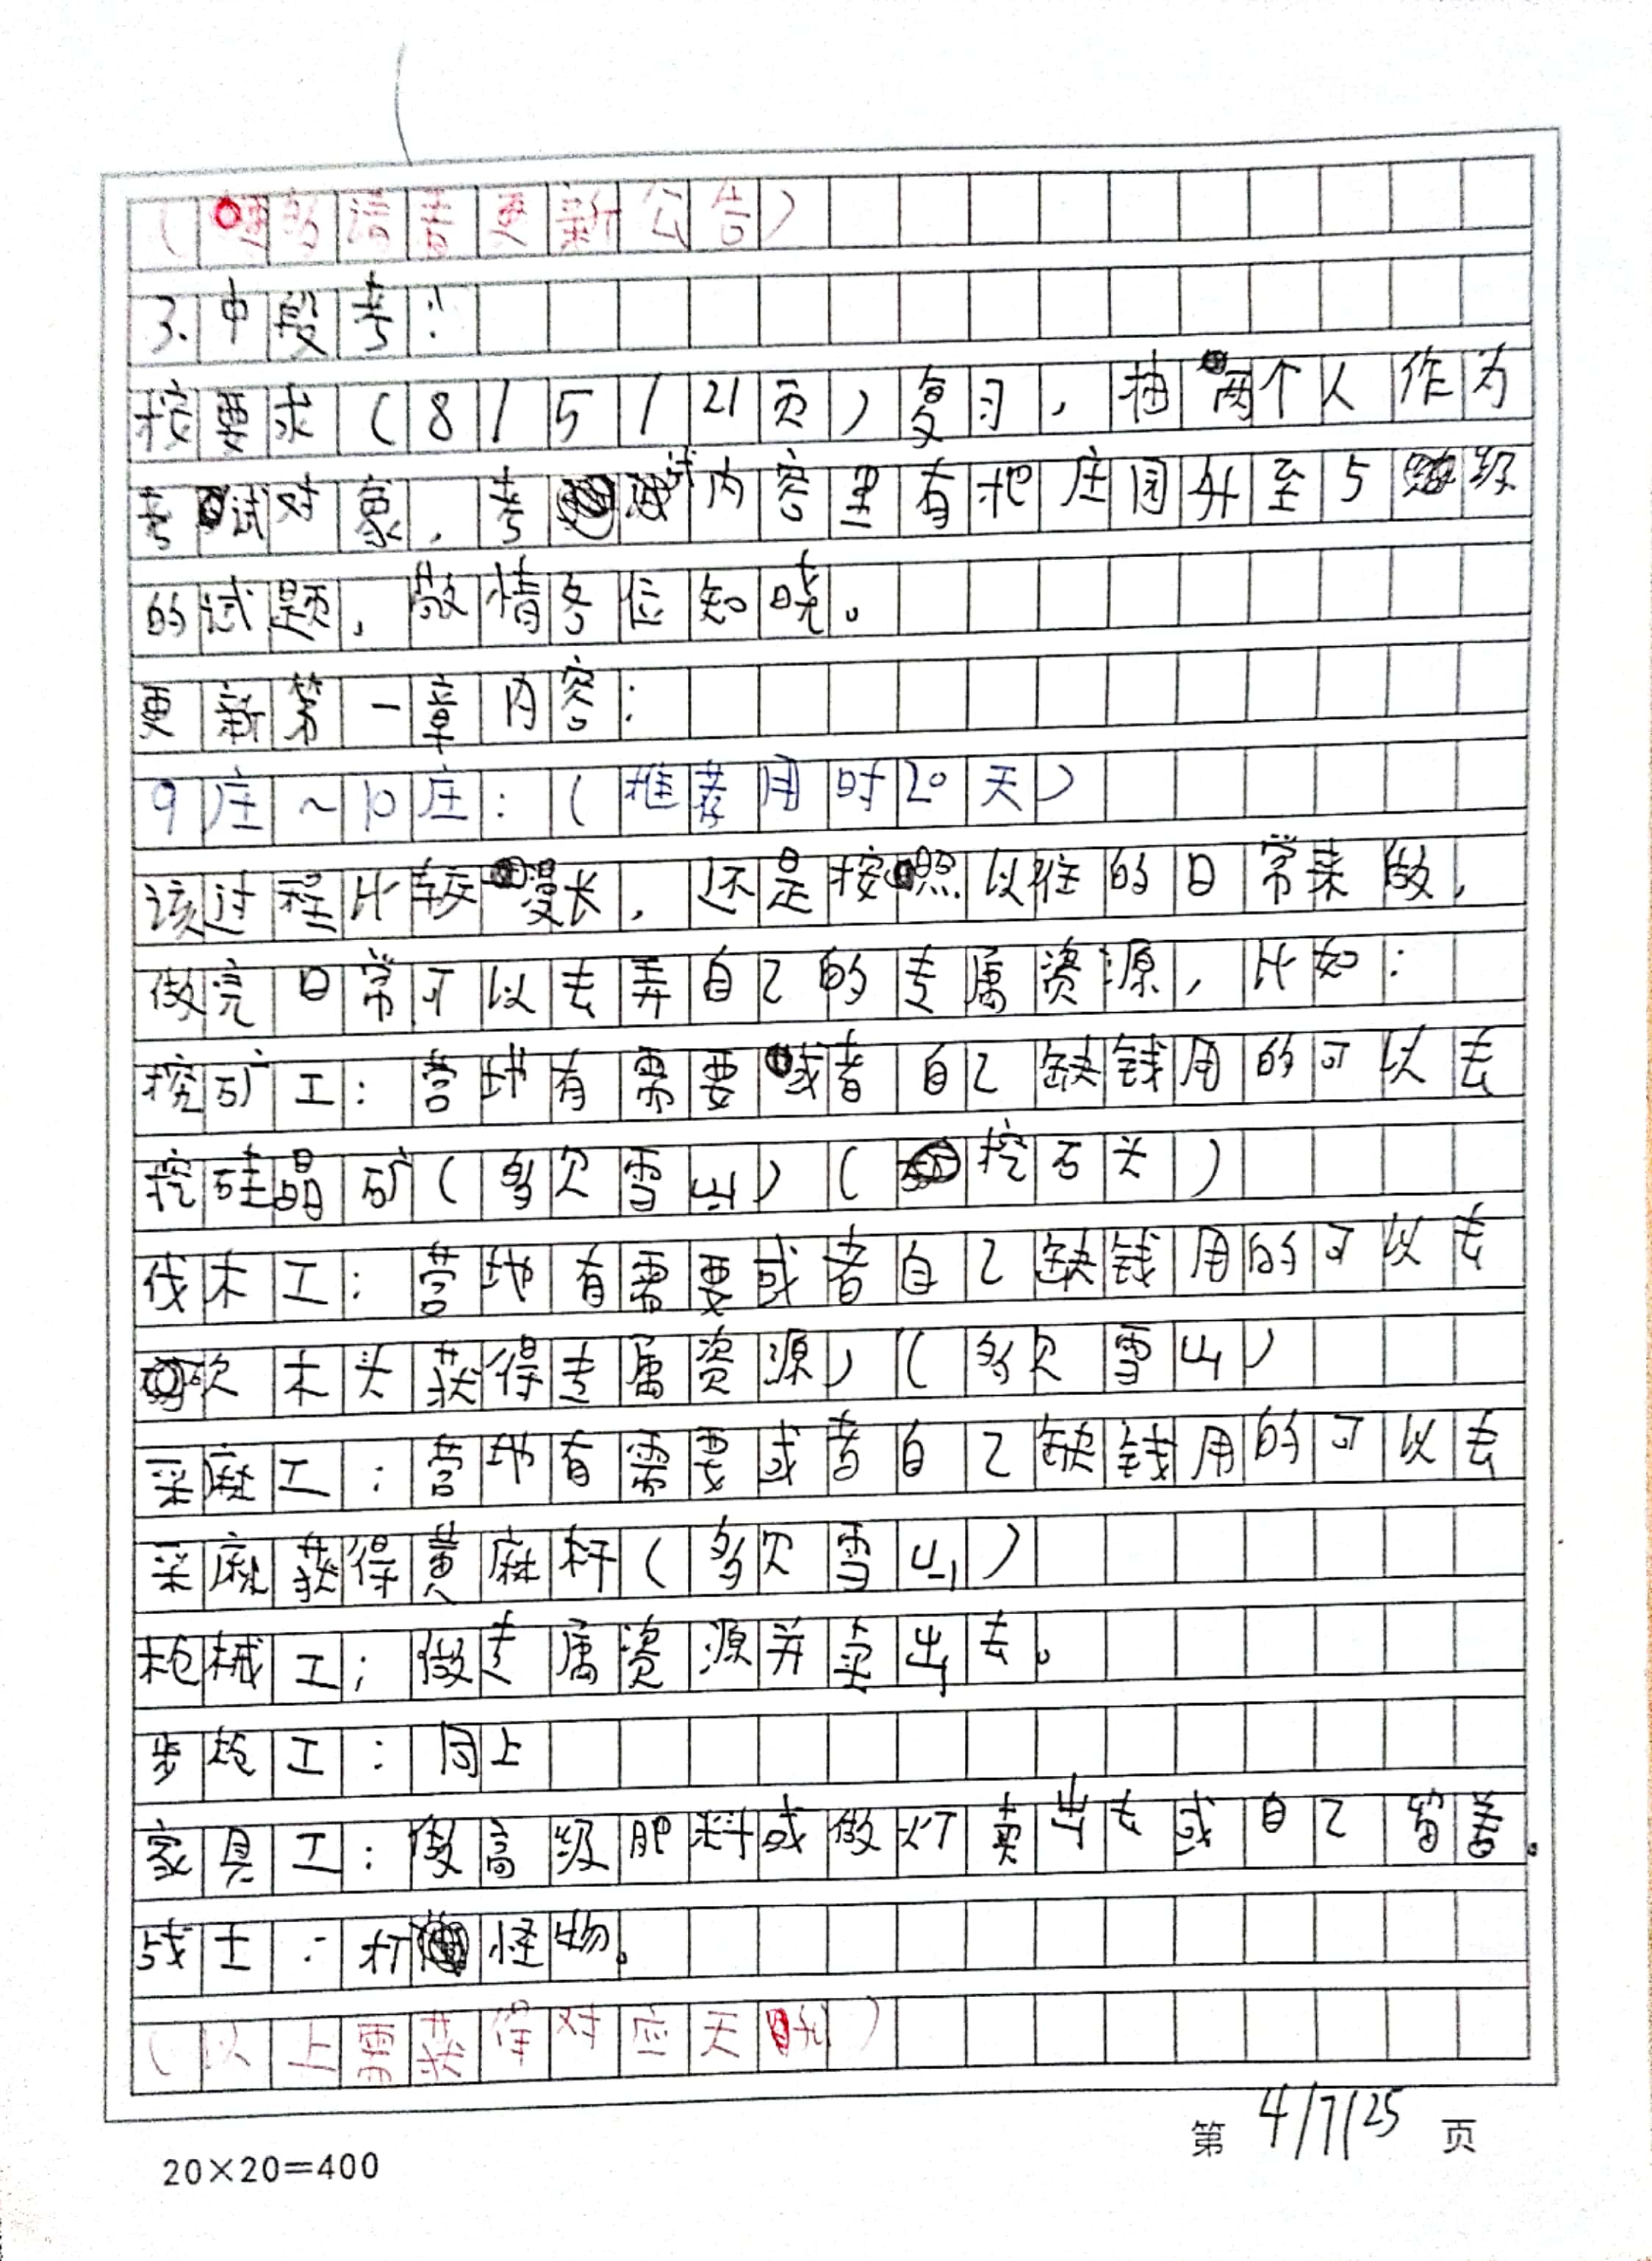 （更多请看更新公告）
3.中段考：
按要求（8/5/21页）复习，抽两个人作为
考试对象，考试内容里有把庄园升至5级
的试题，敬情各位知晓。
更新第一章内容：
9庄～10庄：（推荐用时20天）
该过程比较漫长，还是按照以往的日常来做，
做完日常可以去弄自己的专属资源，比如：
挖矿工：营地有需要或者自己缺钱用的可以去
挖硅晶矿（多贝雪山）（挖石头）
伐木工：营地有需要或者自己缺钱用的可以去
砍木头获得专属资源）（多贝雪山）
采麻工：营地有需要或者自己缺钱用的可以去
采麻获得黄麻杆（多贝雪山）
枪械工：做专属资源并卖出去。
步枪工：同上
家具工：做高级肥料或做灯卖出去或自己留着。
战士：打怪物。
（以上需获得对应天赋）
第4/7/25页
20×20=400